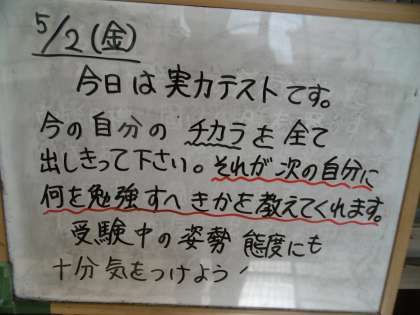 5/2(金)
今日は実力テストです。
今の自分のチカラを全て
出しきって下さい。それが次の自分に
何を勉強すへきかを教えてくれます。
受験中の姿勢 態度にも
十分気をつけよう!